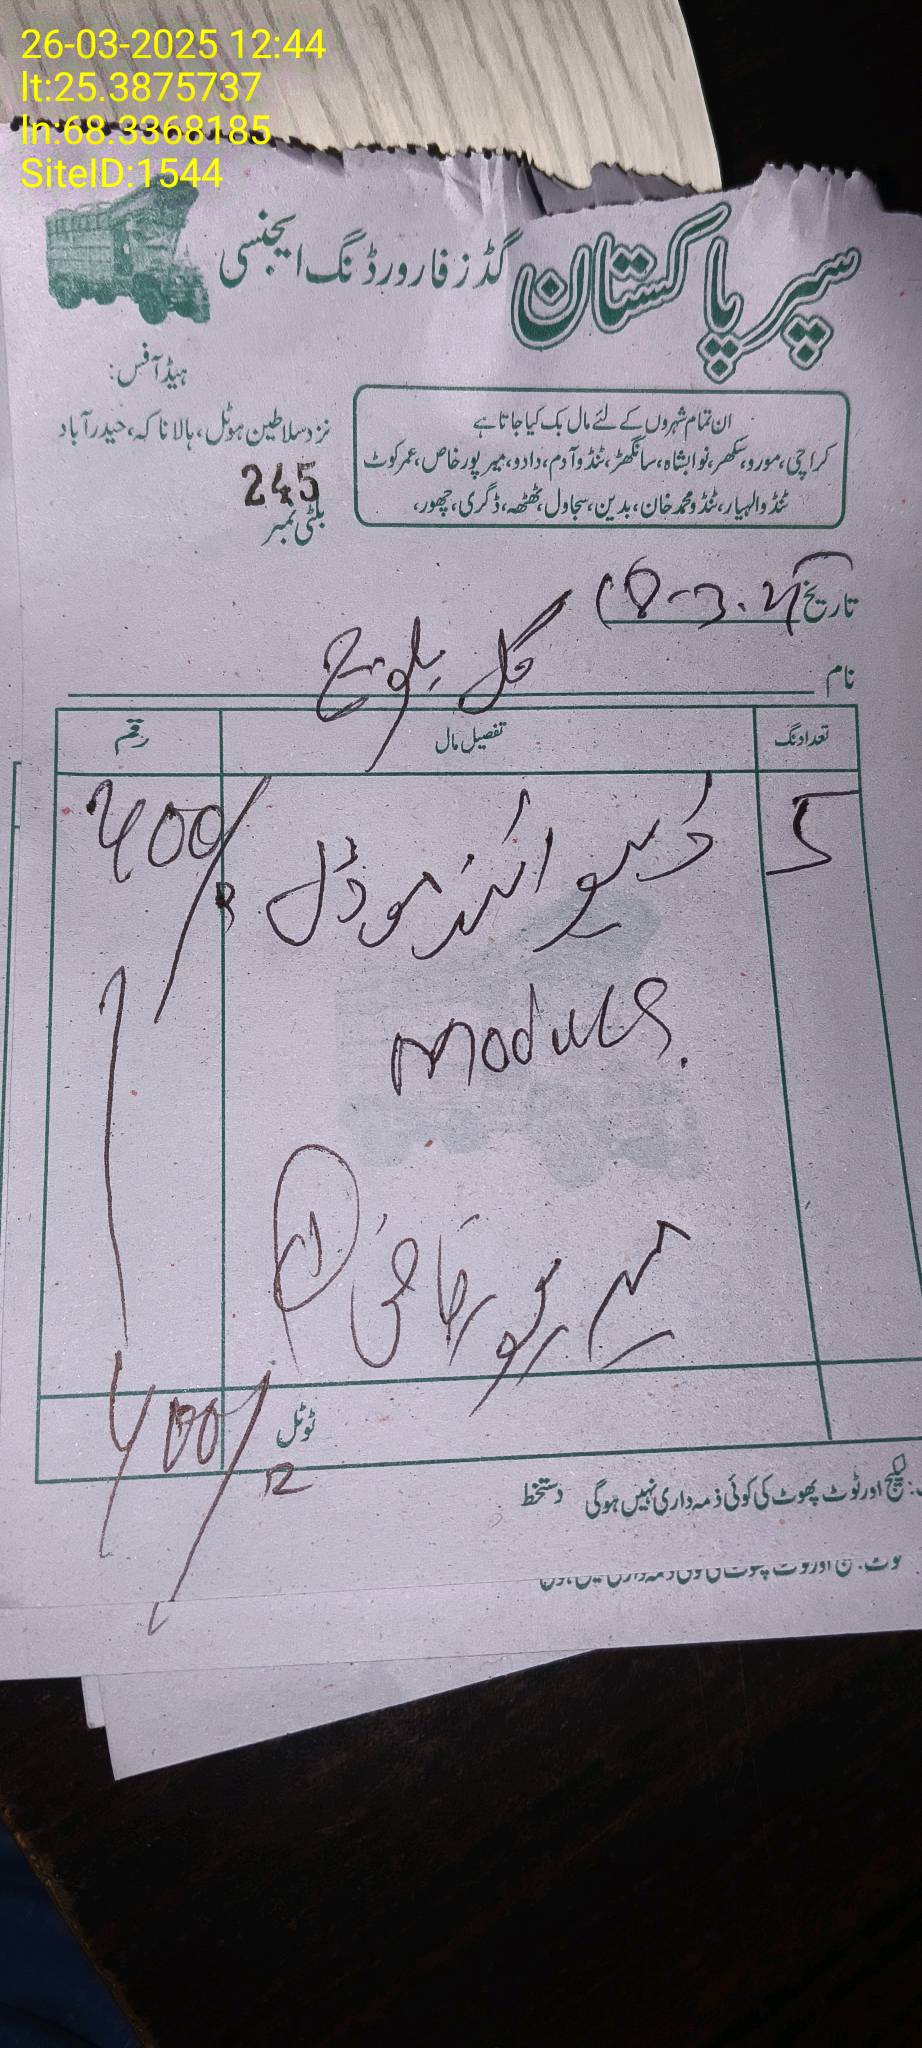 26-03-2025 12:44
lt:25.3875737
ln:68.3368185
SiteID:1544
سپر پاکستان گڈز فارورڈنگ ایجنسی
ہیڈ آفس:
نزد سلاطین ہوٹل، ہالا ناکہ، حیدرآباد
245
بلٹی نمبر
ان تمام شہروں کے لئے مال بک کیا جاتا ہے
کراچی، مورو، سکھر، نوابشاہ، سانگھڑ، ٹنڈوآدم، دادو، میرپورخاص، عمرکوٹ
ٹنڈوالہیار، ٹنڈومحمدخان، بدین، سجاول، ٹھٹھہ، ڈگری، چھور،
تاریخ 18-3-25
نام گل بلوچ
تعداد نگ تفصیل مال رقم
5 موڈل 400/
module
میرپورخاص
ٹوٹل 400/
لیکیج اور ٹوٹ پھوٹ کی کوئی ذمہ داری نہیں ہوگی دستخط